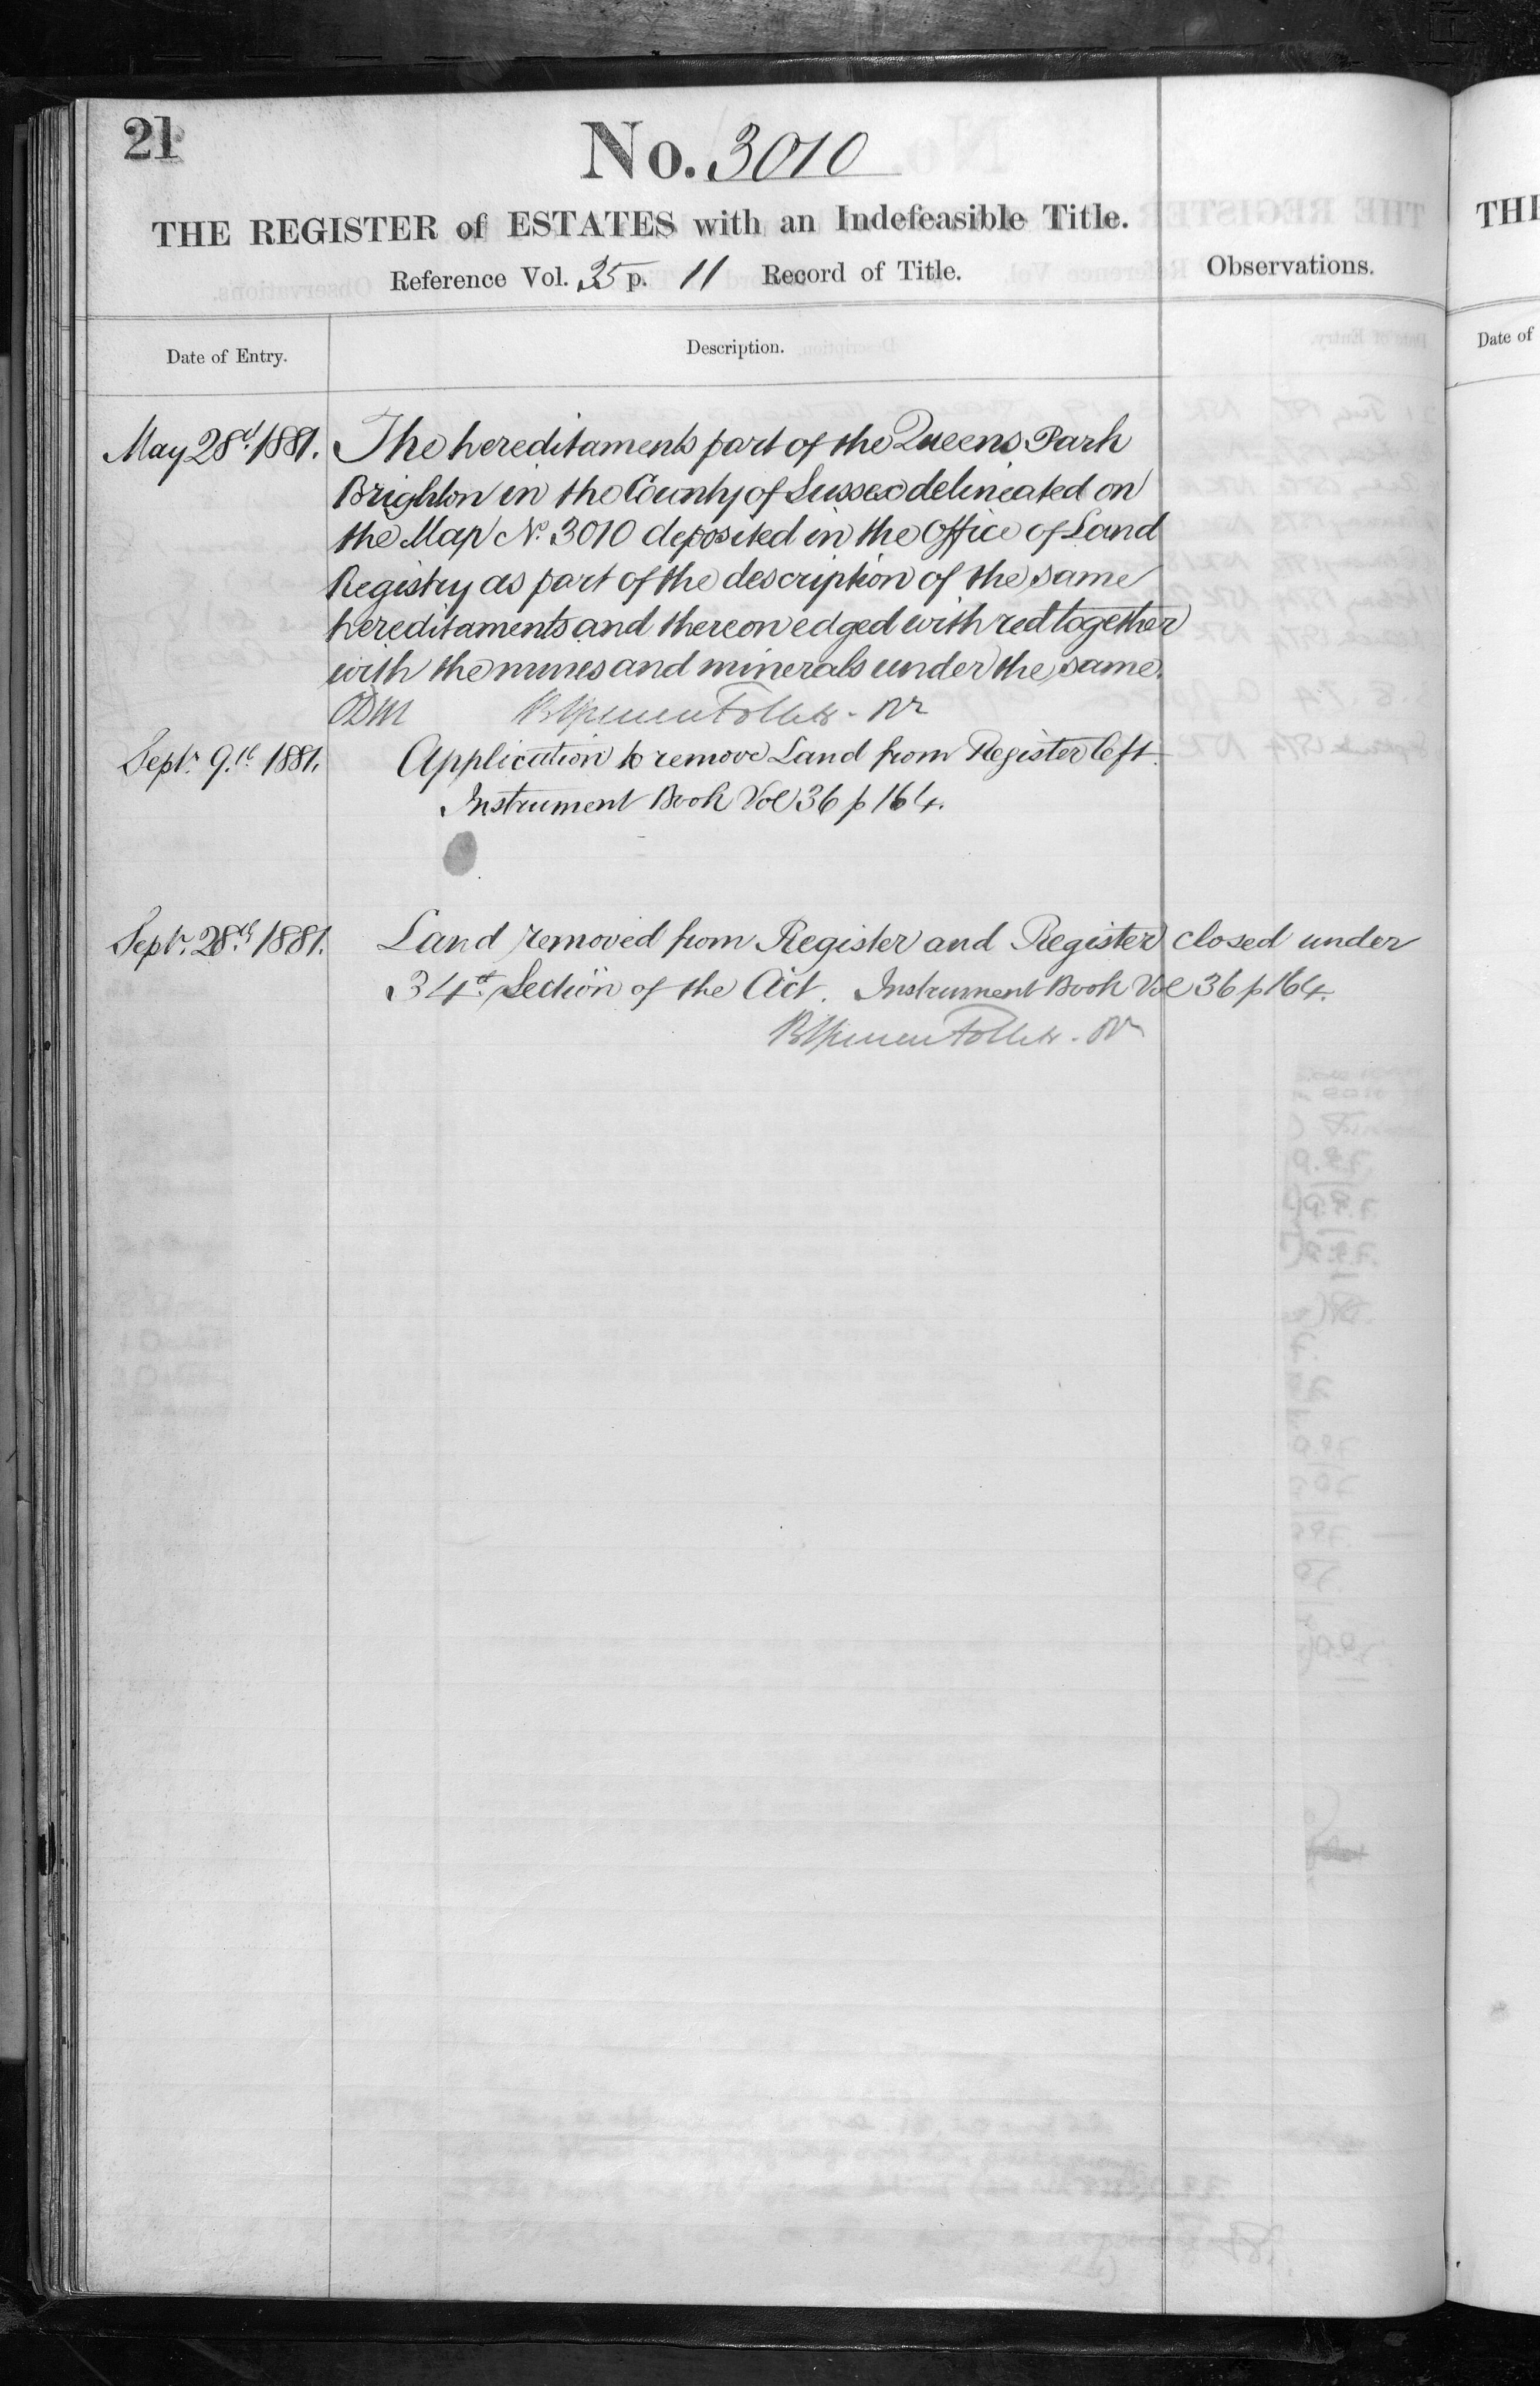 21
No. 3010
THE REGISTER of ESTATES with an Indefeasible Title.
Reference Vol. 35 p. 11 Record of Title.
Observations.
Date of Entry.
Description.
May 28th 1881. The hereditaments part of the Queens Park
Brighton in the County of Sussex delineated on
the Map No. 3010 deposited in the Office of Land
Registry as part of the description of the same
hereditaments and thereon edged with red together
with the mines and minerals under the same.
Sept. 9th 1881. Application to remove Land from Register left.
Instrument Book Vol 36 p 164.
Septr. 28th 1881. Land removed from Register and Register closed under
34th Section of the Act. Instrument Book Vol 36 p 164.
THE
Date of